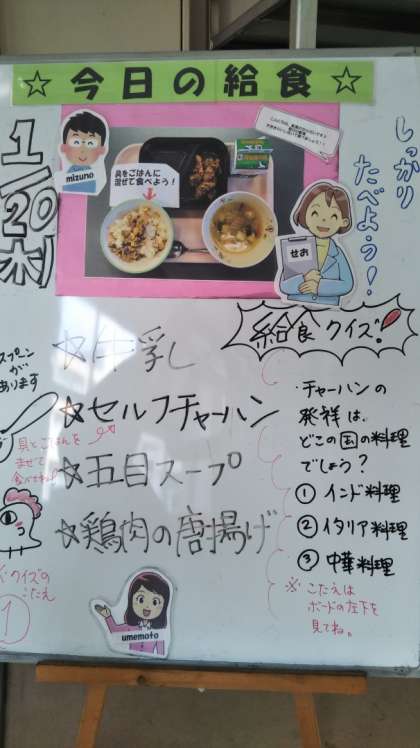 ☆今日の給食☆
1/20(木)
mizuno
具をごはんに
混ぜて食べよう！
せお
しっかり
たべよう！
給食クイズ!
☆牛乳
☆セルフチャーハン
☆五目スープ
☆鶏肉の唐揚げ
スプーン
が
あります
具とごはんを
まぜて
食べてね
・チャーハンの
発祥は、
どこの国の料理
でしょう？
① インド料理
② イタリア料理
③ 中華料理
※ こたえは
ボードの左下を
見てね。
クイズの
こたえ
①
umemoto